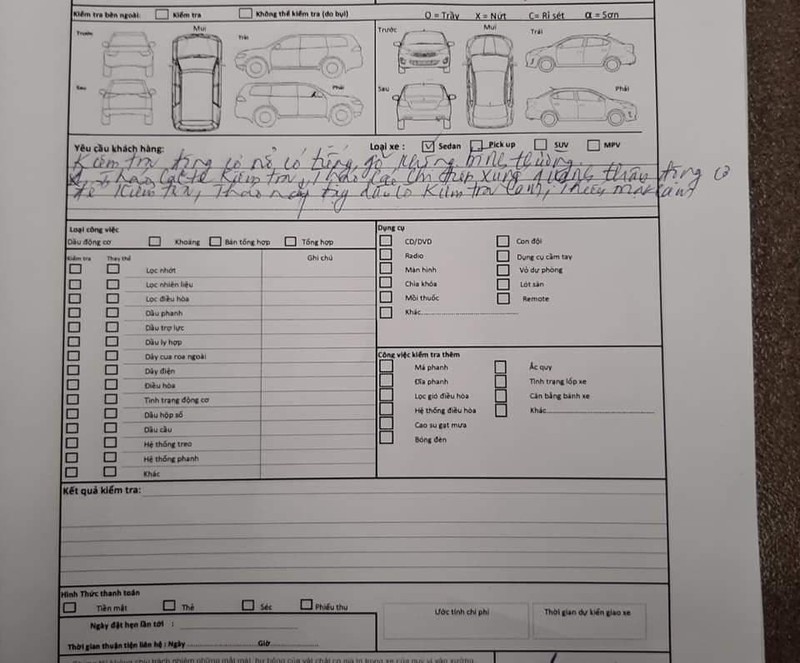 Kiểm tra bên ngoài: Kiểm tra Không thể kiểm tra (do bụi) O = Trầy X = Nứt C= Rỉ sét α = Sơn
Trước Mui Trái Trước Mui Trái
Sau Phải Sau Phải
Yêu cầu khách hàng: Loại xe : Sedan Pick up SUV MPV
Kiểm tra động cơ nổ có tiếng gõ không bình thường.
Tháo cacte kiểm tra, tháo các chi tiết xung quanh thân động cơ
để kiểm tra, tháo nắp
Loại công việc
Dầu động cơ Khoáng Bán tổng hợp Tổng hợp
Kiểm tra Thay thế Ghi chú
Lọc nhớt
Lọc nhiên liệu
Lọc điều hòa
Dầu phanh
Dầu trợ lực
Dầu ly hợp
Dây cua roa ngoài
Dây điện
Điều hòa
Tình trạng động cơ
Dầu hộp số
Dầu cầu
Hệ thống treo
Hệ thống phanh
Khác
Dụng cụ
CD/DVD Con đội
Radio Dụng cụ cầm tay
Màn hình Vỏ dự phòng
Chìa khóa Lót sàn
Mồi thuốc Remote
Khác
Công việc kiểm tra thêm
Má phanh Ắc quy
Đĩa phanh Tình trạng lốp xe
Lọc gió điều hòa Cân bằng bánh xe
Hệ thống điều hòa Khác
Cao su gạt mưa
Bóng đèn
Kết quả kiểm tra:
Hình Thức thanh toán
Tiền mặt Thẻ Séc Phiếu thu
Ước tính chi phí Thời gian dự kiến giao xe
Ngày đặt hẹn lần tới :
Thời gian thuận tiện liên hệ : Ngày Giờ